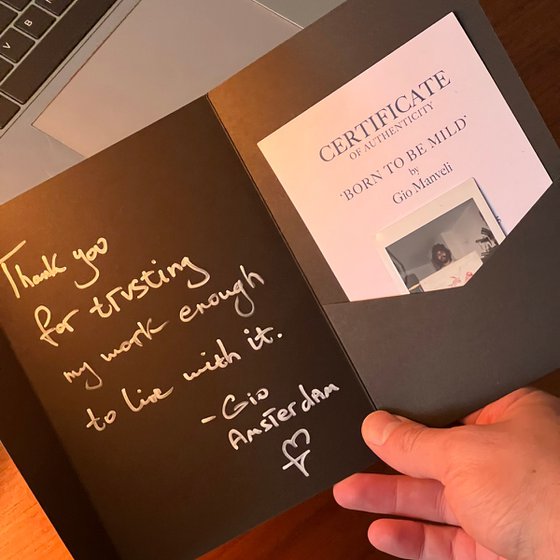 Thank you
for trusting
my work enough
to live with it.
- Gio
Amsterdam
CERTIFICATE
OF AUTHENTICITY
'BORN TO BE MILD'
by
Gio Manveli
V
B
N